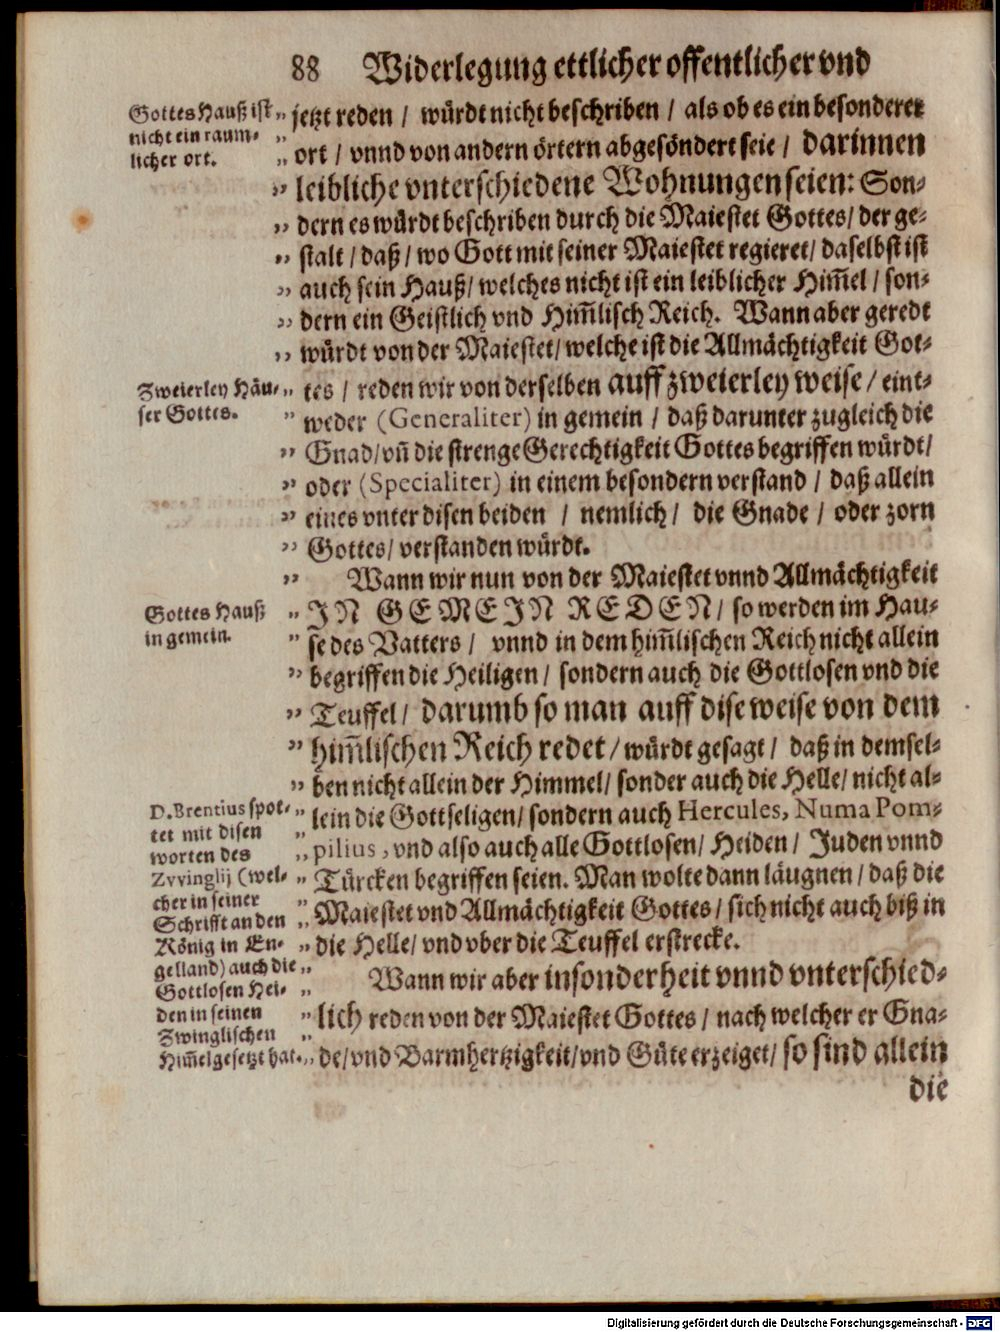 88 Widerlegung ettlicher offentlicher vnd
Gottes Hauß ist
nicht ein raum-
licher ort.
„ jetzt reden / würdt nicht beschriben / als ob es ein besonderer
„ ort / vnnd von andern örtern abgesöndert seie / darinnen
„ leibliche vnterschiedene Wohnungen seien: Son-
„ dern es würdt beschriben durch die Maiestet Gottes/ der ge-
„ stalt / daß / wo Gott mit seiner Maiestet regieret / daselbst ist
„ auch sein Hauß / welches nicht ist ein leiblicher Him̃el / son-
„ dern ein Geistlich vnd Him̃lisch Reich. Wann aber geredt
„ würdt von der Maiestet/ welche ist die Allmächtigkeit Got-
Zweierley Häu-
ser Gottes.
„ tes / reden wir von derselben auff zweierley weise / eint-
„ weder (Generaliter) in gemein / daß darunter zugleich die
„ Gnad/ vñ die strenge Gerechtigkeit Gottes begriffen würdt/
„ oder (Specialiter) in einem besondern verstand / daß allein
„ eines vnter disen beiden / nemlich / die Gnade / oder zorn
„ Gottes/ verstanden würdt.
„ Wann wir nun von der Maiestet vnnd Allmächtigkeit
Gottes Hauß
in gemein.
„ IN GEMEIN REDEN/ so werden im Hau-
„ se des Vatters / vnnd in dem him̃lischen Reich nicht allein
„ begriffen die Heiligen / sondern auch die Gottlosen vnd die
„ Teuffel / darumb so man auff dise weise von dem
„ him̃lischen Reich redet / würdt gesagt / daß in demsel-
„ ben nicht allein der Himmel/ sonder auch die Helle/ nicht al-
D. Brentius spot-
tet mit disen
worten des
Zvvinglij (wel-
cher in seiner
Schrifft an den
König in En-
gelland) auch die
Gottlosen Hei-
den in seinen
Zwinglischen
Him̃el gesetzt hat.
„ lein die Gottseligen/ sondern auch Hercules, Numa Pom-
„ pilius, vnd also auch alle Gottlosen/ Heiden / Juden vnnd
„ Türcken begriffen seien. Man wolte dann läugnen / daß die
„ Maiestet vnd Allmächtigkeit Gottes / sich nicht auch biß in
„ die Helle/ vnd vber die Teuffel erstrecke.
„ Wann wir aber insonderheit vnnd vnterschied-
„ lich reden von der Maiestet Gottes / nach welcher er Gna-
„ de/ vnd Barmhertzigkeit/ vnd Güte erzeiget/ so sind allein
die
Digitalisierung gefördert durch die Deutsche Forschungsgemeinschaft - DFG